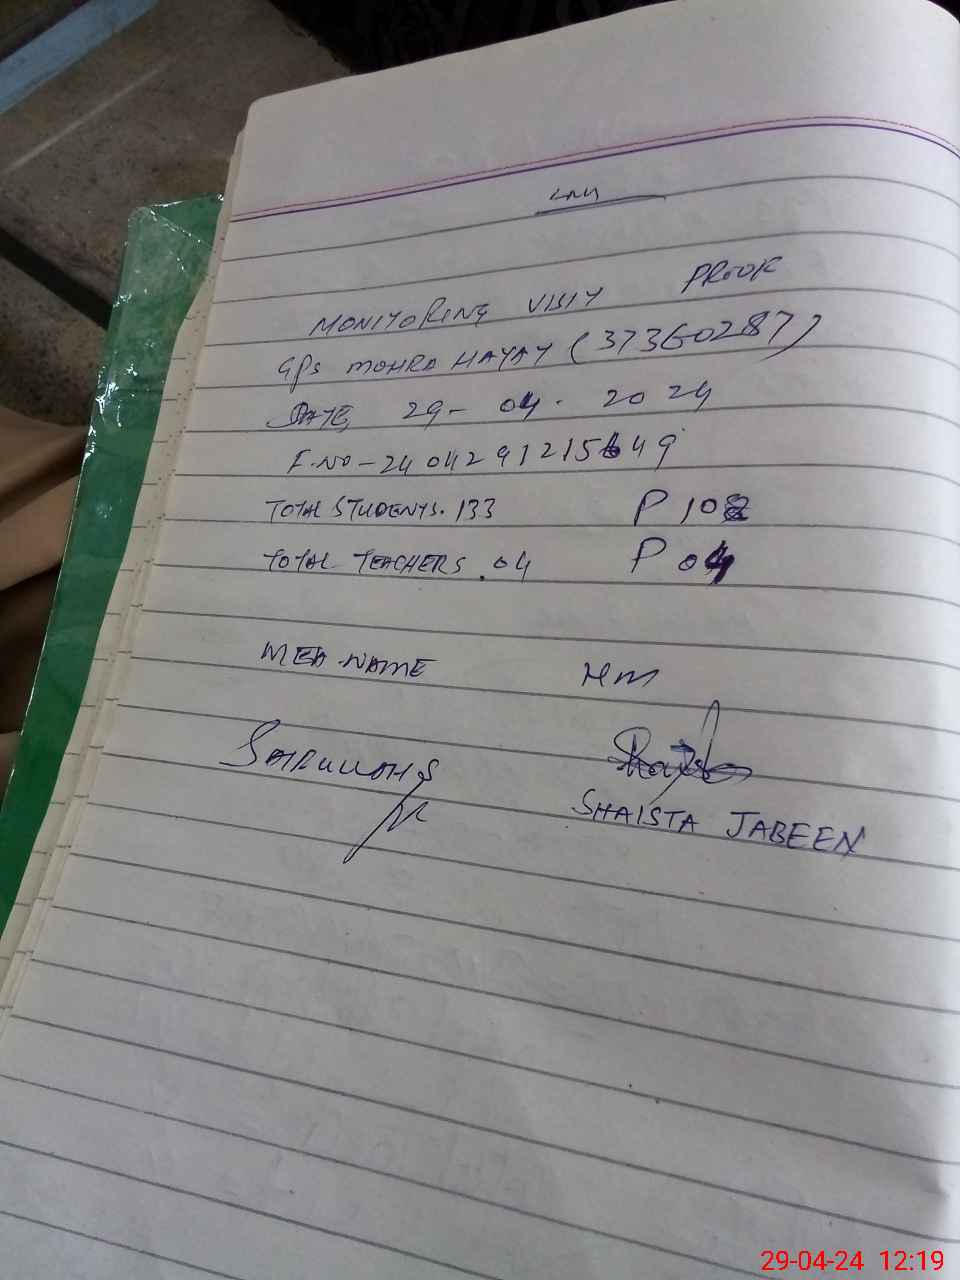 MONITORING VISIT PROOF
GPS MOHRA HAYAT (37360287)
DATE, 29-04-2024
F.NO-240429121549
TOTAL STUDENTS. 133 P 108
TOTAL TEACHERS. 04 P 04
MEA-NAME HM
SHAISTA JABEEN
29-04-24 12:19